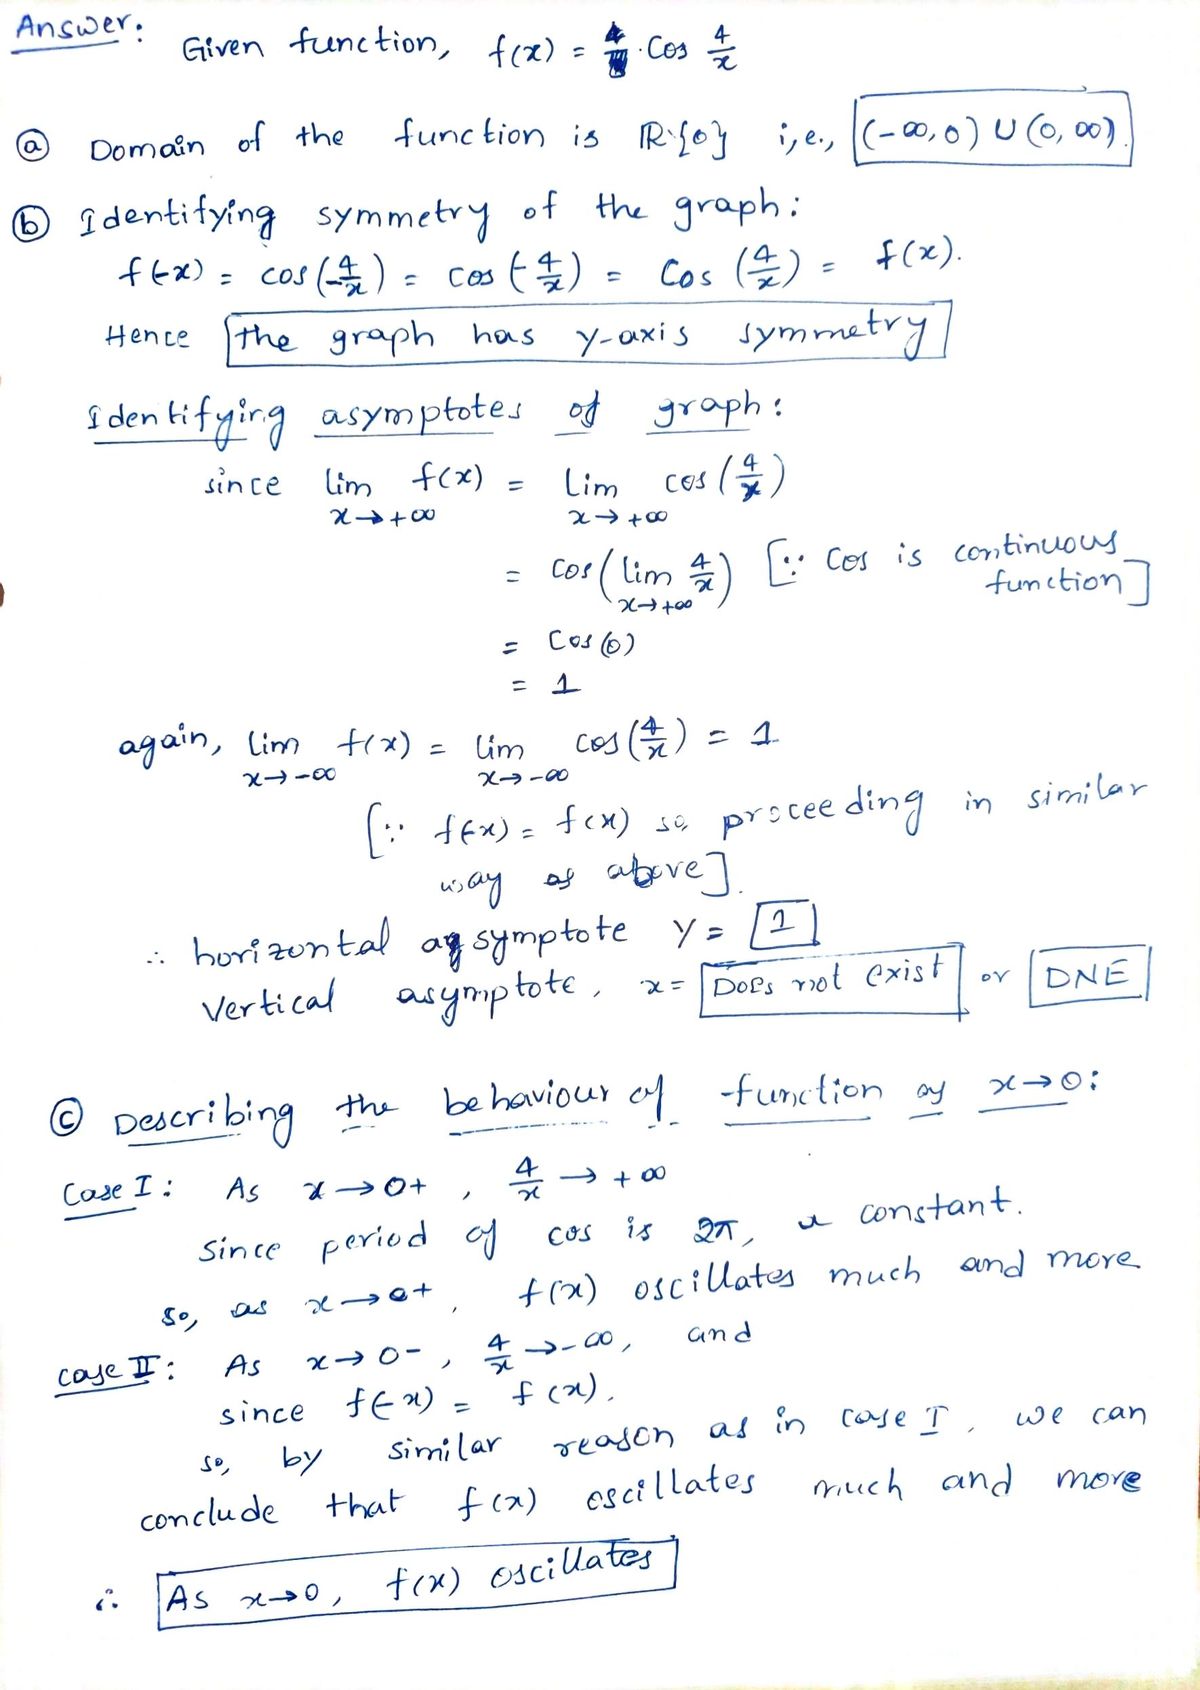 Answer:
Given function, f(x) = . Cos 4/x
(a) Domain of the function is ℝ-{0} i,e., (-∞,0) ∪ (0,∞).
(b) Identifying symmetry of the graph:
f(-x) = cos(4/-x) = cos(-4/x) = Cos(4/x) = f(x).
Hence the graph has y-axis symmetry
Identifying asymptotes of graph:
since lim x→+∞ f(x) = Lim x→+∞ cos(4/x)
= cos(lim x→+∞ 4/x) [∵ Cos is continuous function]
= Cos(0)
= 1
again, lim x→-∞ f(x) = lim x→-∞ cos(4/x) = 1
[∵ f(-x) = f(x) so, proceeding in similar
way as above].
∴ horizontal asymptote y = 1
Vertical asymptote, x = Does not exist or DNE
(c) Describing the behaviour of function as x→0:
Case I: As x→0+, 4/x → +∞
Since period of cos is 2π, a constant.
so, as x→0+, f(x) oscillates much and more
case II: As x→0-, 4/x →-∞, and
since f(-x) = f(x).
so, by similar reason as in case I, we can
conclude that f(x) oscillates much and more
∴ As x→0, f(x) oscillates